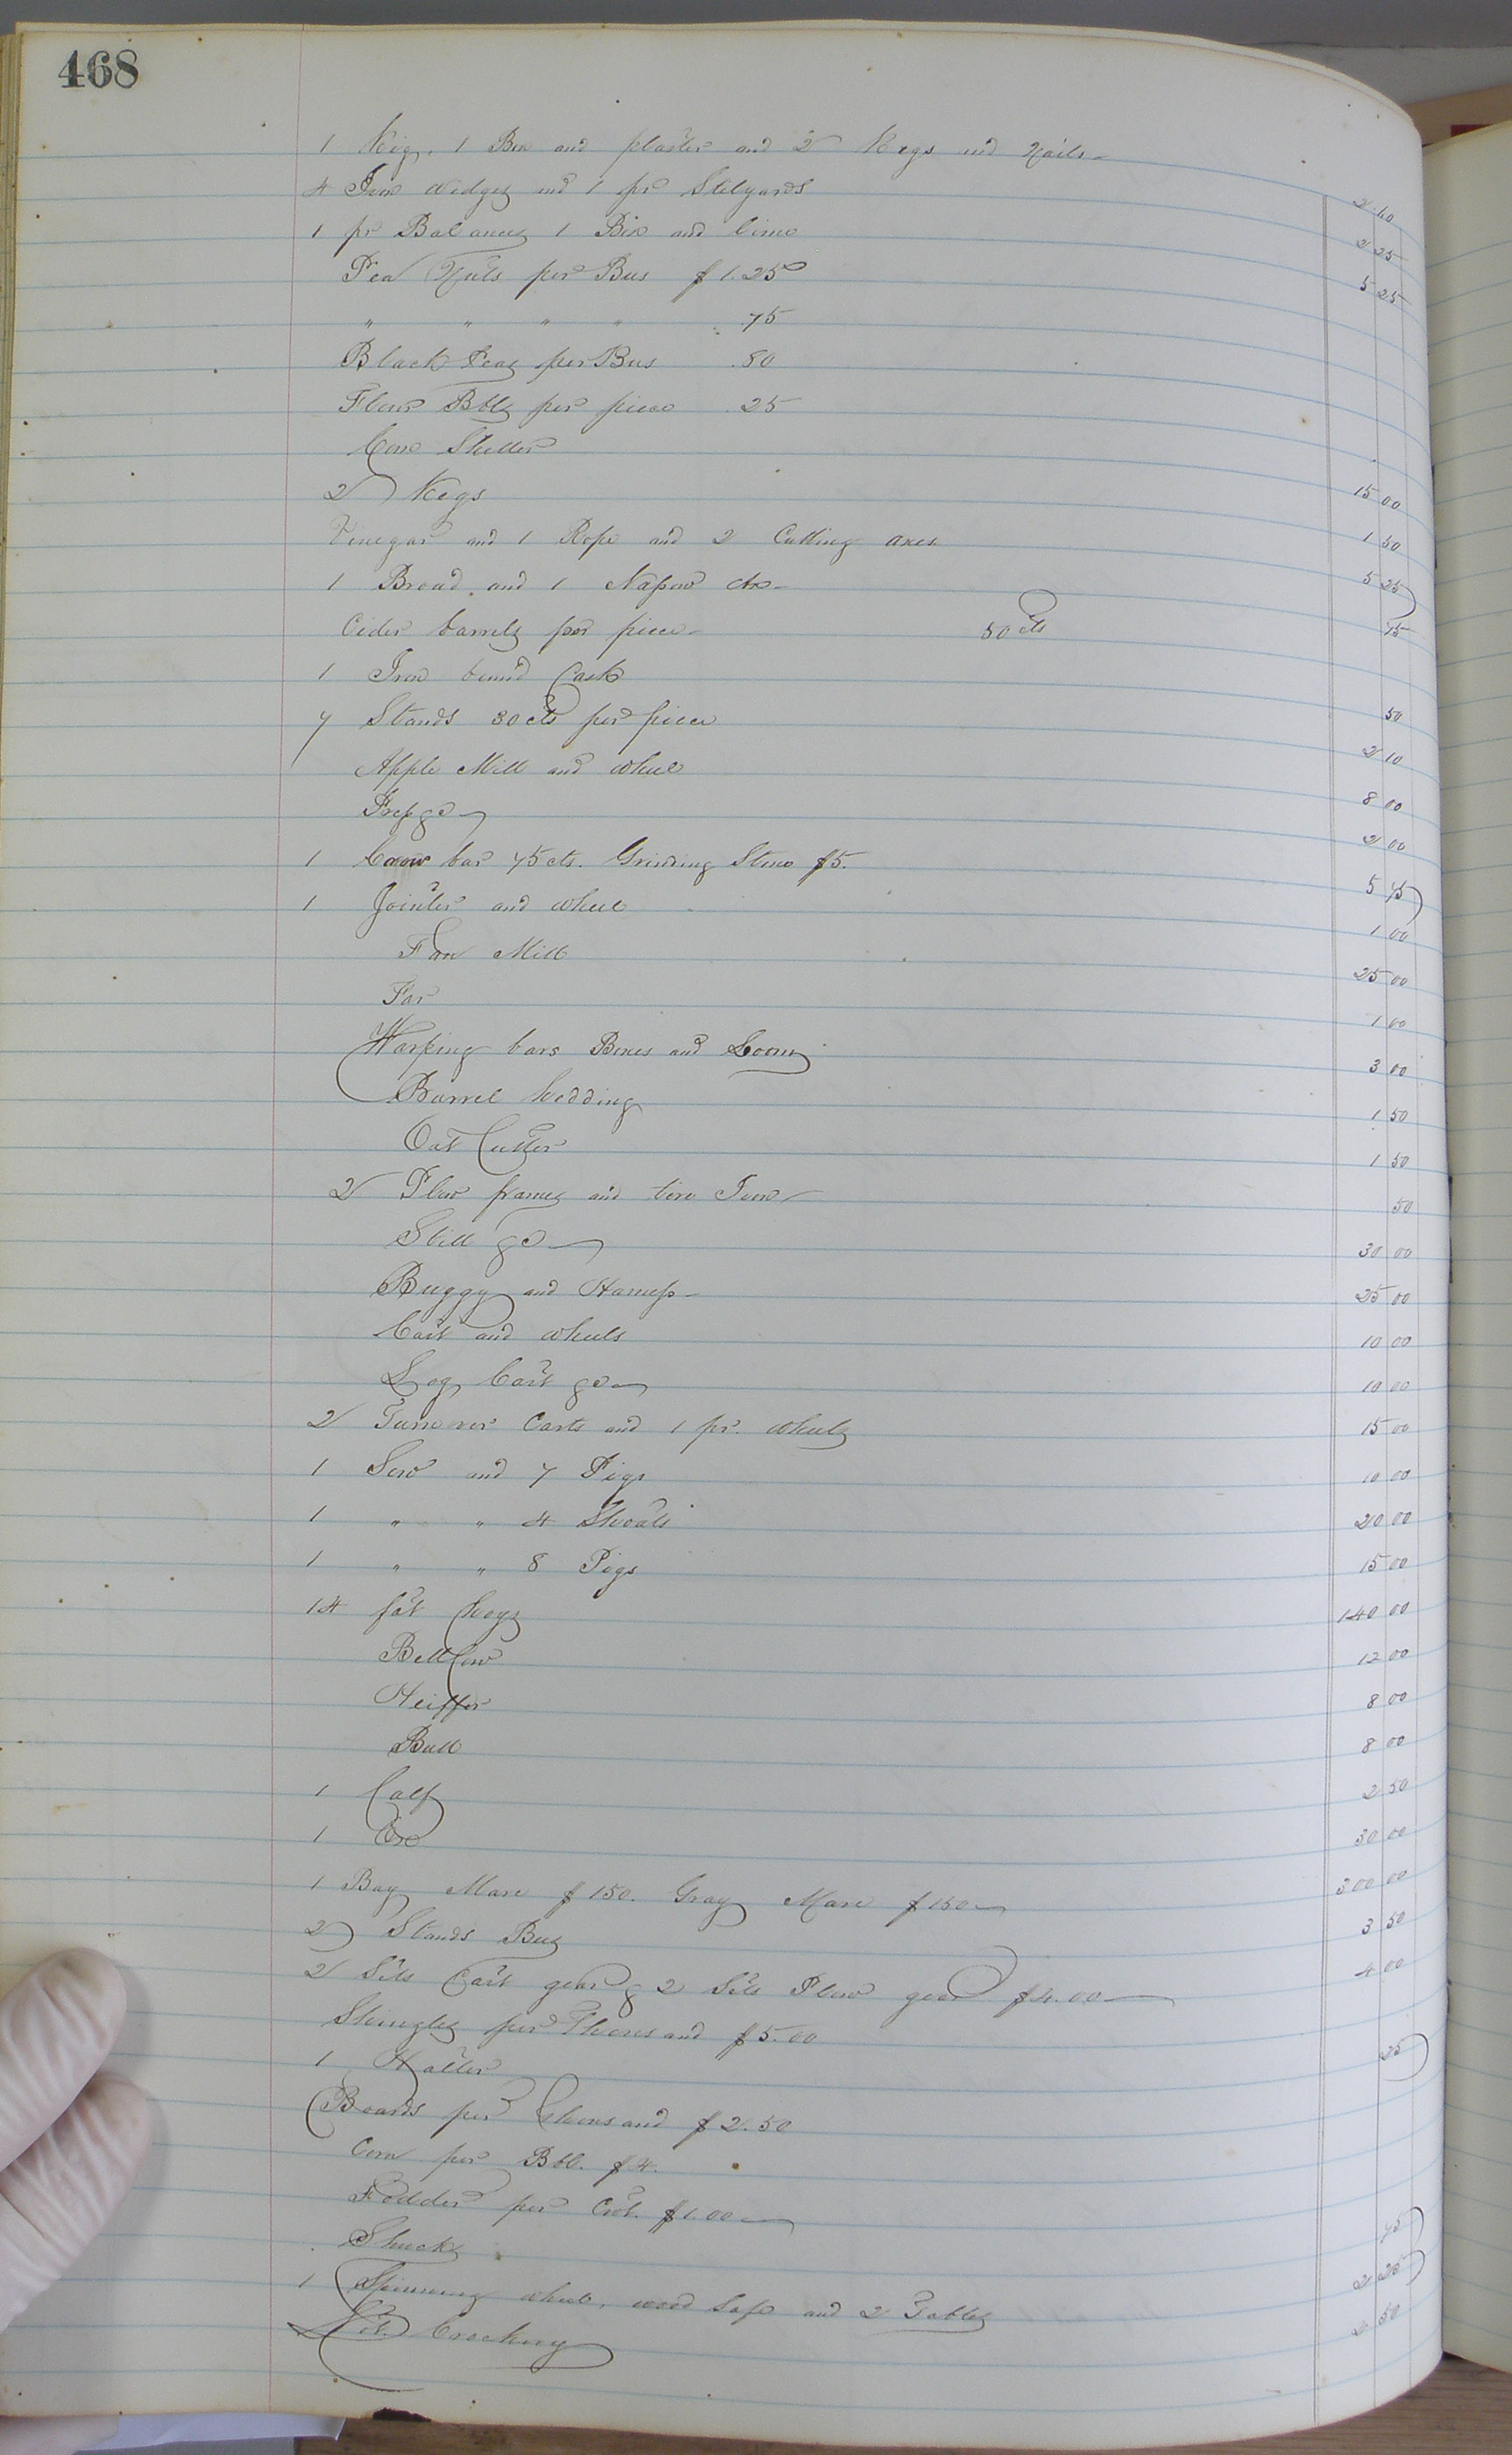 468
1 Keg, 1 Box and plaster and 2 Kegs and Nails 2 60
4 Iron Wedges and 1 pr Stilyards 2 25
1 pr Balances 1 Box and lime 5 25
Pea Nuts per Bus $1.25
" " " " .75
Black Peas per Bus .80
Flour Bbls per piece .25
Corn Sheller 15 00
2 Kegs 1 50
Vinegar and 1 Rope and 2 Cutting axes 5 25
1 Broad and 1 Narrow do 75
Cider barrels per piece 50 cts
1 Iron bound Cask 50
7 Stands 30 cts per piece 2 10
Apple Mill and wheel 8 00
Press &c 2 00
1 Crow bar 75 cts. Grinding Stone $5. 5 75
1 Jointer and wheel 1 00
Fan Mill 25 00
Tar 1 00
Warping bars Boxes and Loom 3 00
Barrel hedding 1 50
Oat Cutter 1 50
2 Plow frames and tire Iron 50
Still &c 30 00
Buggy and Harness 25 00
Cart and wheels 10 00
Log Cart &c 10 00
2 Turnover Carts and 1 pr. wheels 15 00
1 Sow and 7 Pigs 10 00
1 " " 4 Shoats 20 00
1 " " 8 Pigs 15 00
14 fat hogs 140 00
Bell Cow 12 00
Heiffer 8 00
Bull 8 00
1 Calf 2 50
1 Oxe 30 00
1 Bay Mare $150. Gray Mare $150 300 00
2 Stands Bees 3 50
2 Sets Cart gear & 2 Sets Plow gear $4.00 4 00
Shingles per Thousand $5.00
1 Halter 25
Boards per thousand $2.50
Corn per Bbl. $4.
Fodder per Cwt. $1.00
Shucks 75
1 Spinning wheel, wood Safe and 2 Tables 2 25
Lot Crockery 2 50